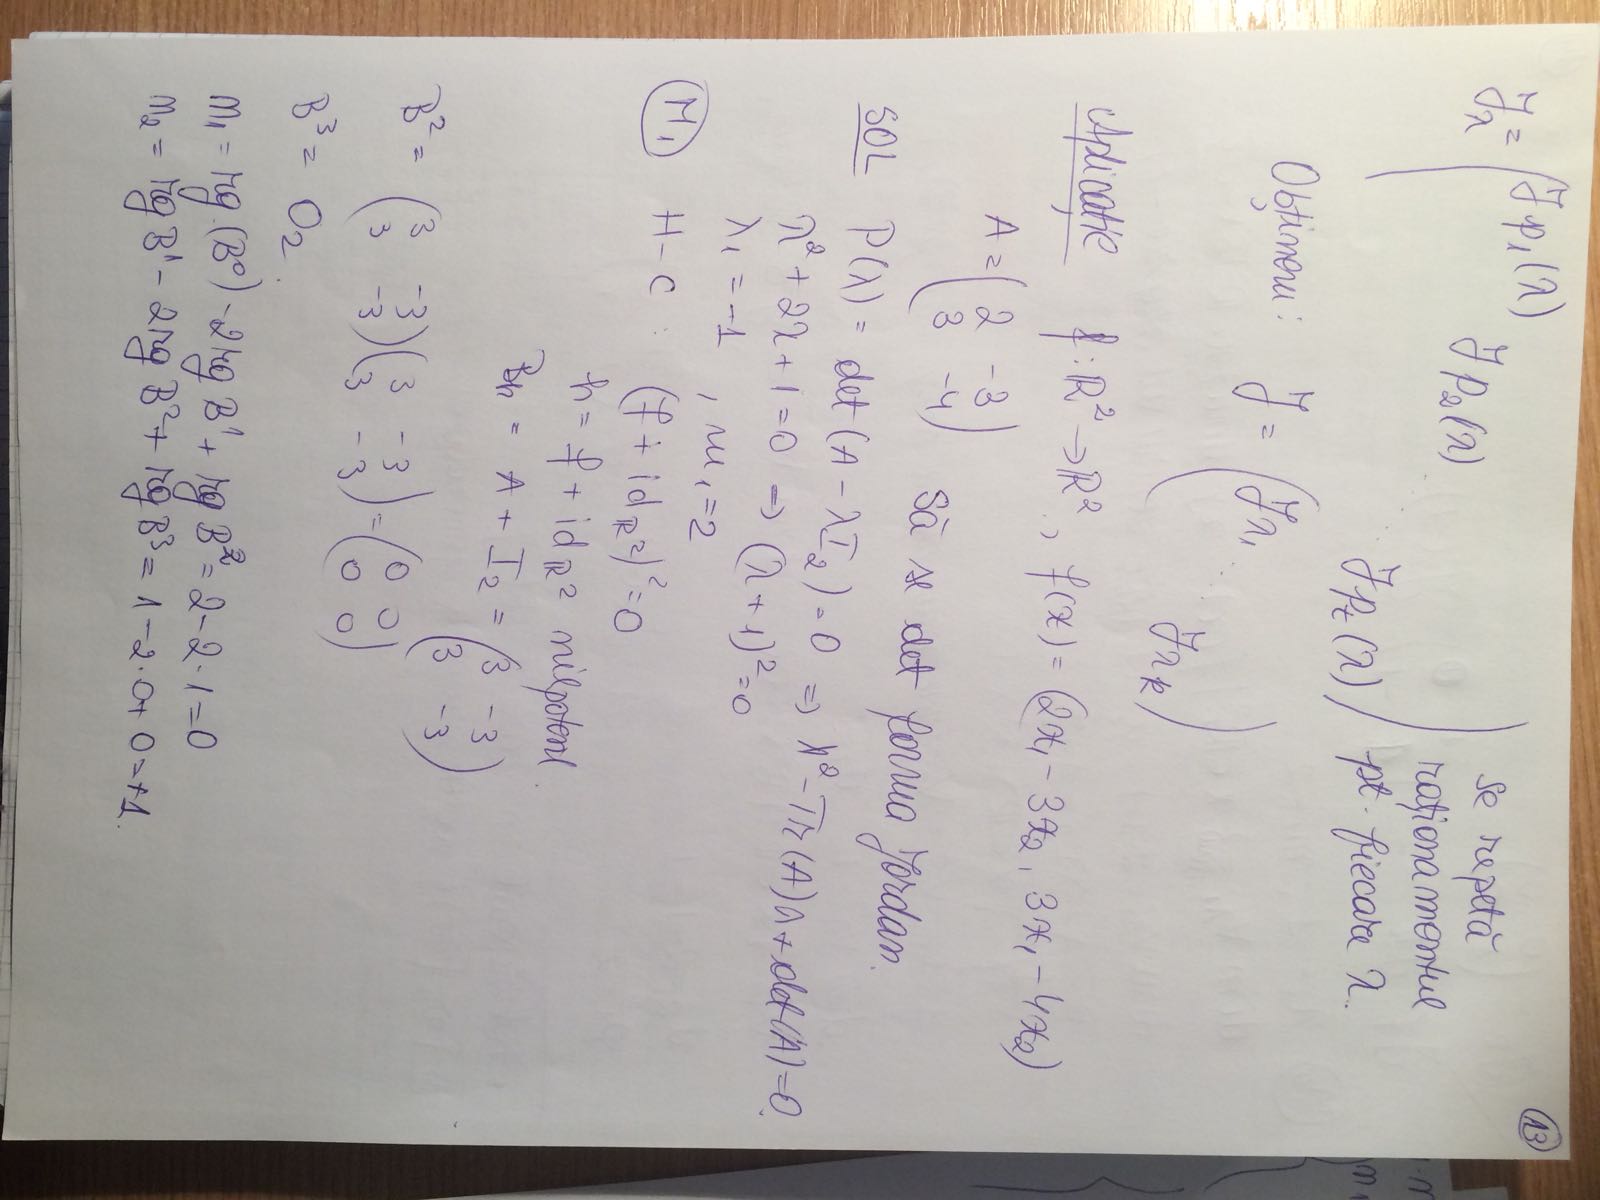 13
J_λ = ( J_{p1}(λ) J_{p2}(λ) ... J_{pt}(λ) ) se repetă
raționamentul
pt. fiecare λ.
Obținem: J = ( J_{λ1} ... J_{λk} )
Aplicație f: ℝ² → ℝ², f(x) = (2x₁ - 3x₂, 3x₁ - 4x₂)
A = ( 2 -3
3 -4 ) Să se det forma Jordan.
SOL P(λ) = det(A - λI₂) = 0 ⇒ λ² - Tr(A)λ + det(A) = 0.
λ² + 2λ + 1 = 0 ⇒ (λ + 1)² = 0
λ₁ = -1, m₁ = 2
M₁ H-C: (f + id_{ℝ²})² = 0
h = f + id_{ℝ²} nilpotent.
B = A + I₂ = ( 3 -3
3 -3 )
B² = ( 3 -3
3 -3 ) ( 3 -3
3 -3 ) = ( 0 0
0 0 )
B³ = O₂.
m₁ = rg(B⁰) - 2rg B¹ + rg B² = 2 - 2·1 = 0
m₂ = rg B¹ - 2rg B² + rg B³ = 1 - 2·0 + 0 = +1.